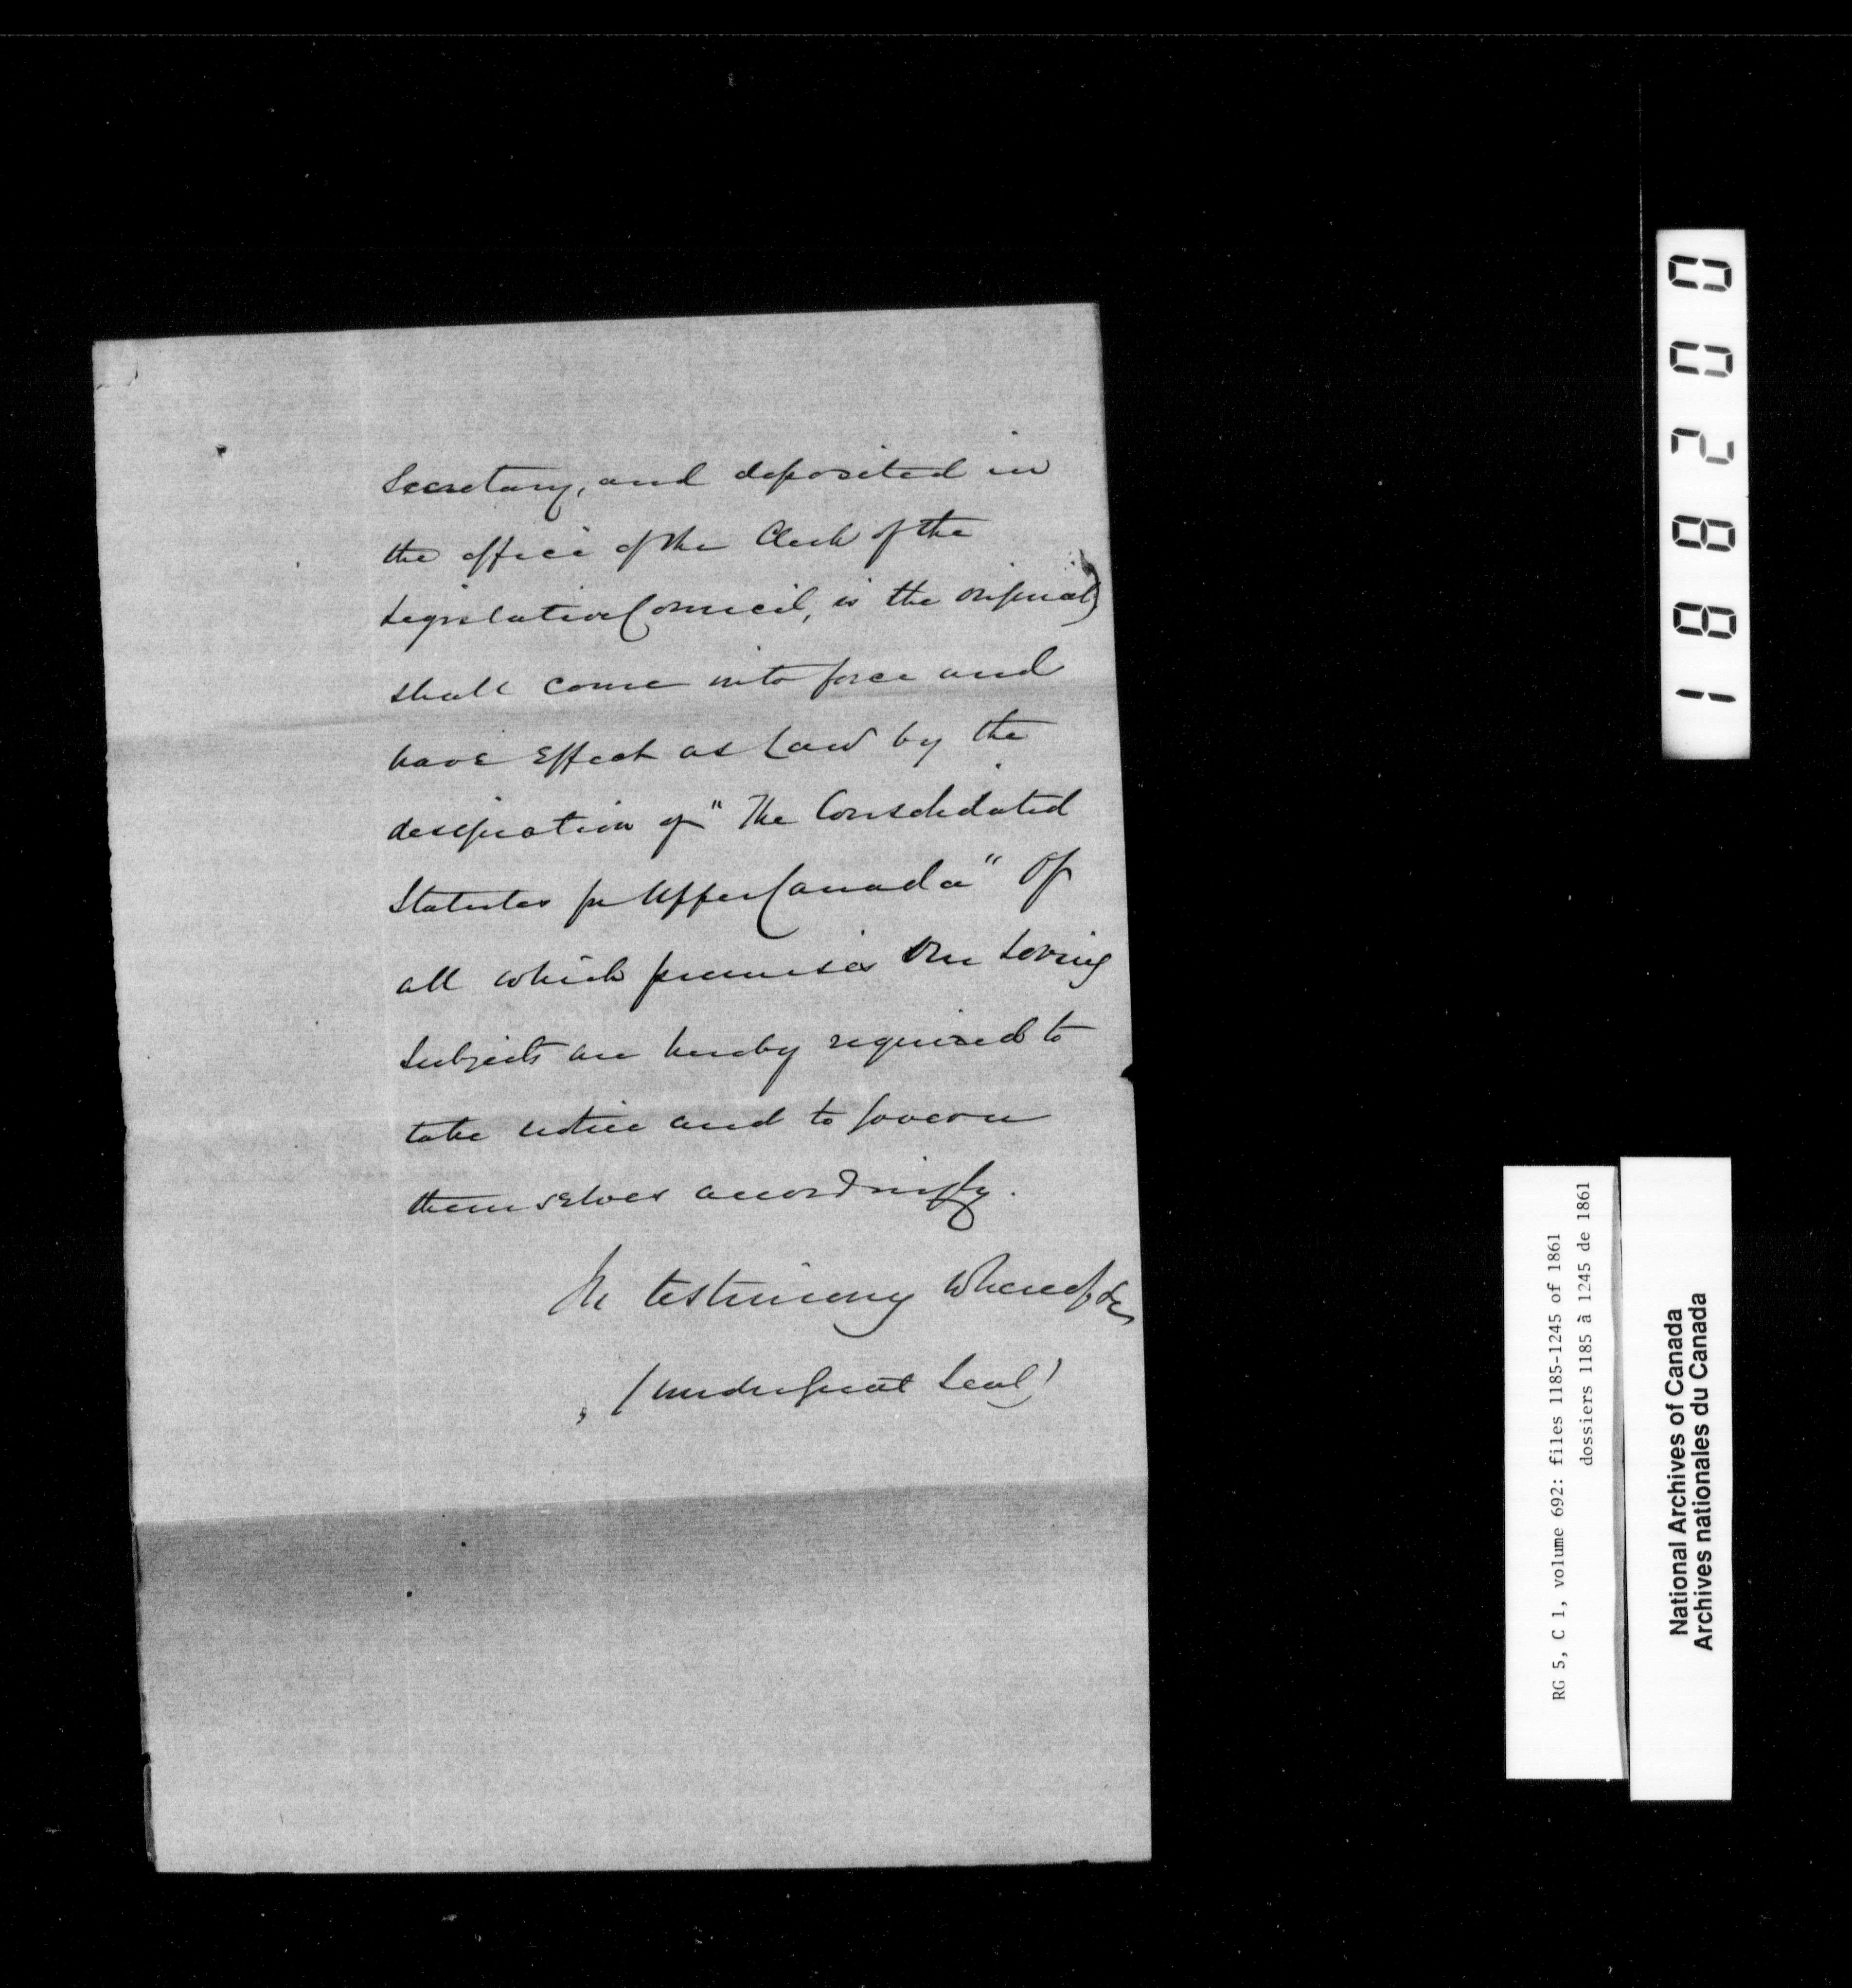 Secretary, and deposited in
the office of the Clerk of the
Legislative Council, is the original)
shall come into force and
have Effect as Law by the
designation of "The Consolidated
Statutes for Upper Canada" Of
all which premises Our Loving
Subjects are hereby required to
take notice and to Govern
themselves accordingly.
In testimony Whereof &c
(under Great Seal)
188200
RG 5, C 1, volume 692: files 1185-1245 of 1861
dossiers 1185 à 1245 de 1861
National Archives of Canada
Archives nationales du Canada